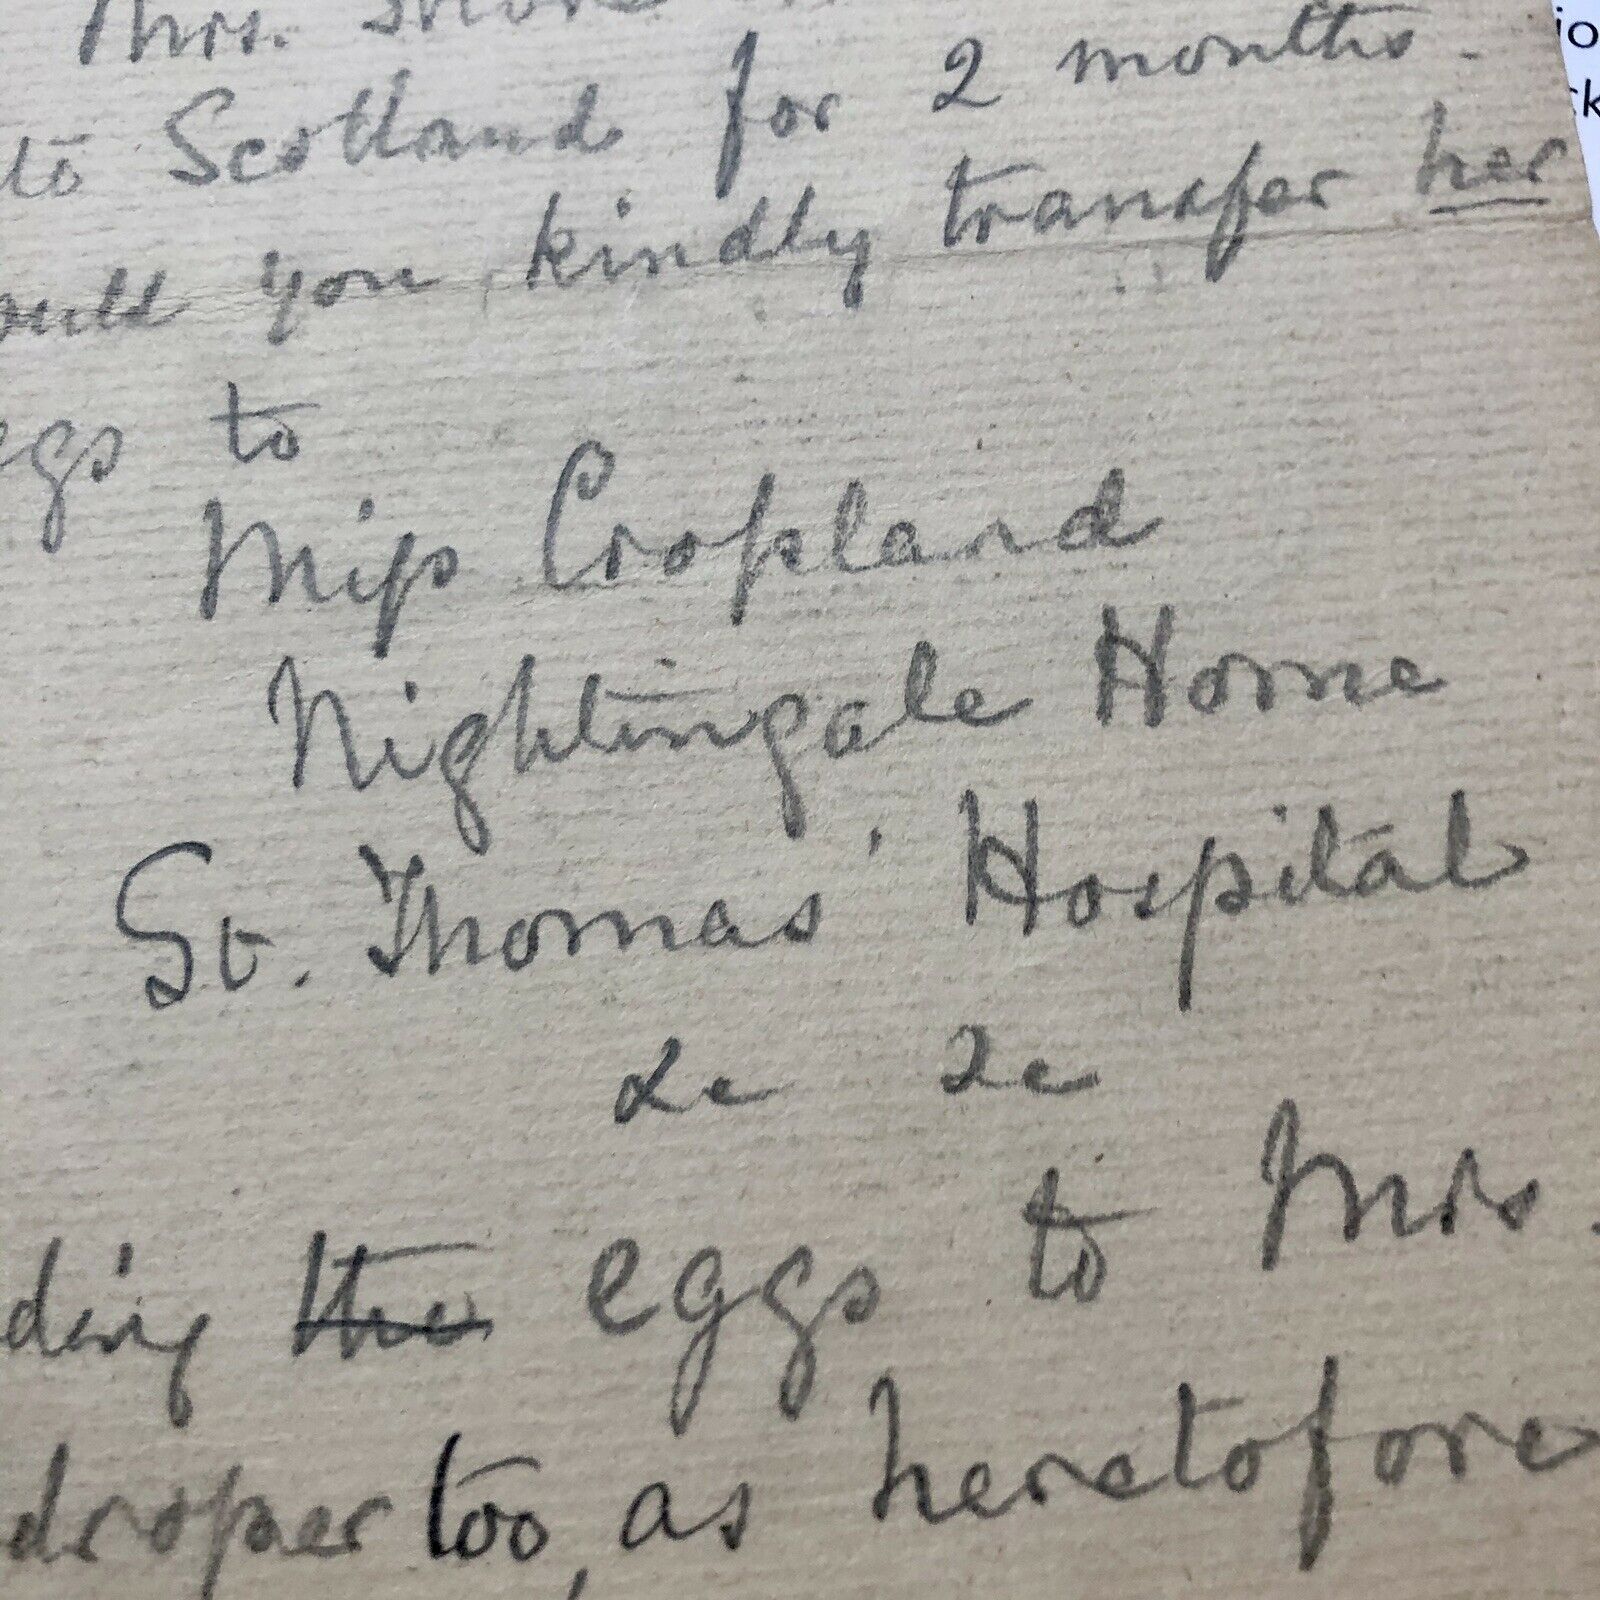 Mrs.
to Scotland for 2 months.
ould you kindly transfer her
eggs to
Miss Crossland
Nightingale Home
St. Thomas' Hospital
&c &c
ding the eggs to Mrs.
droper too, as heretofore
io
ck